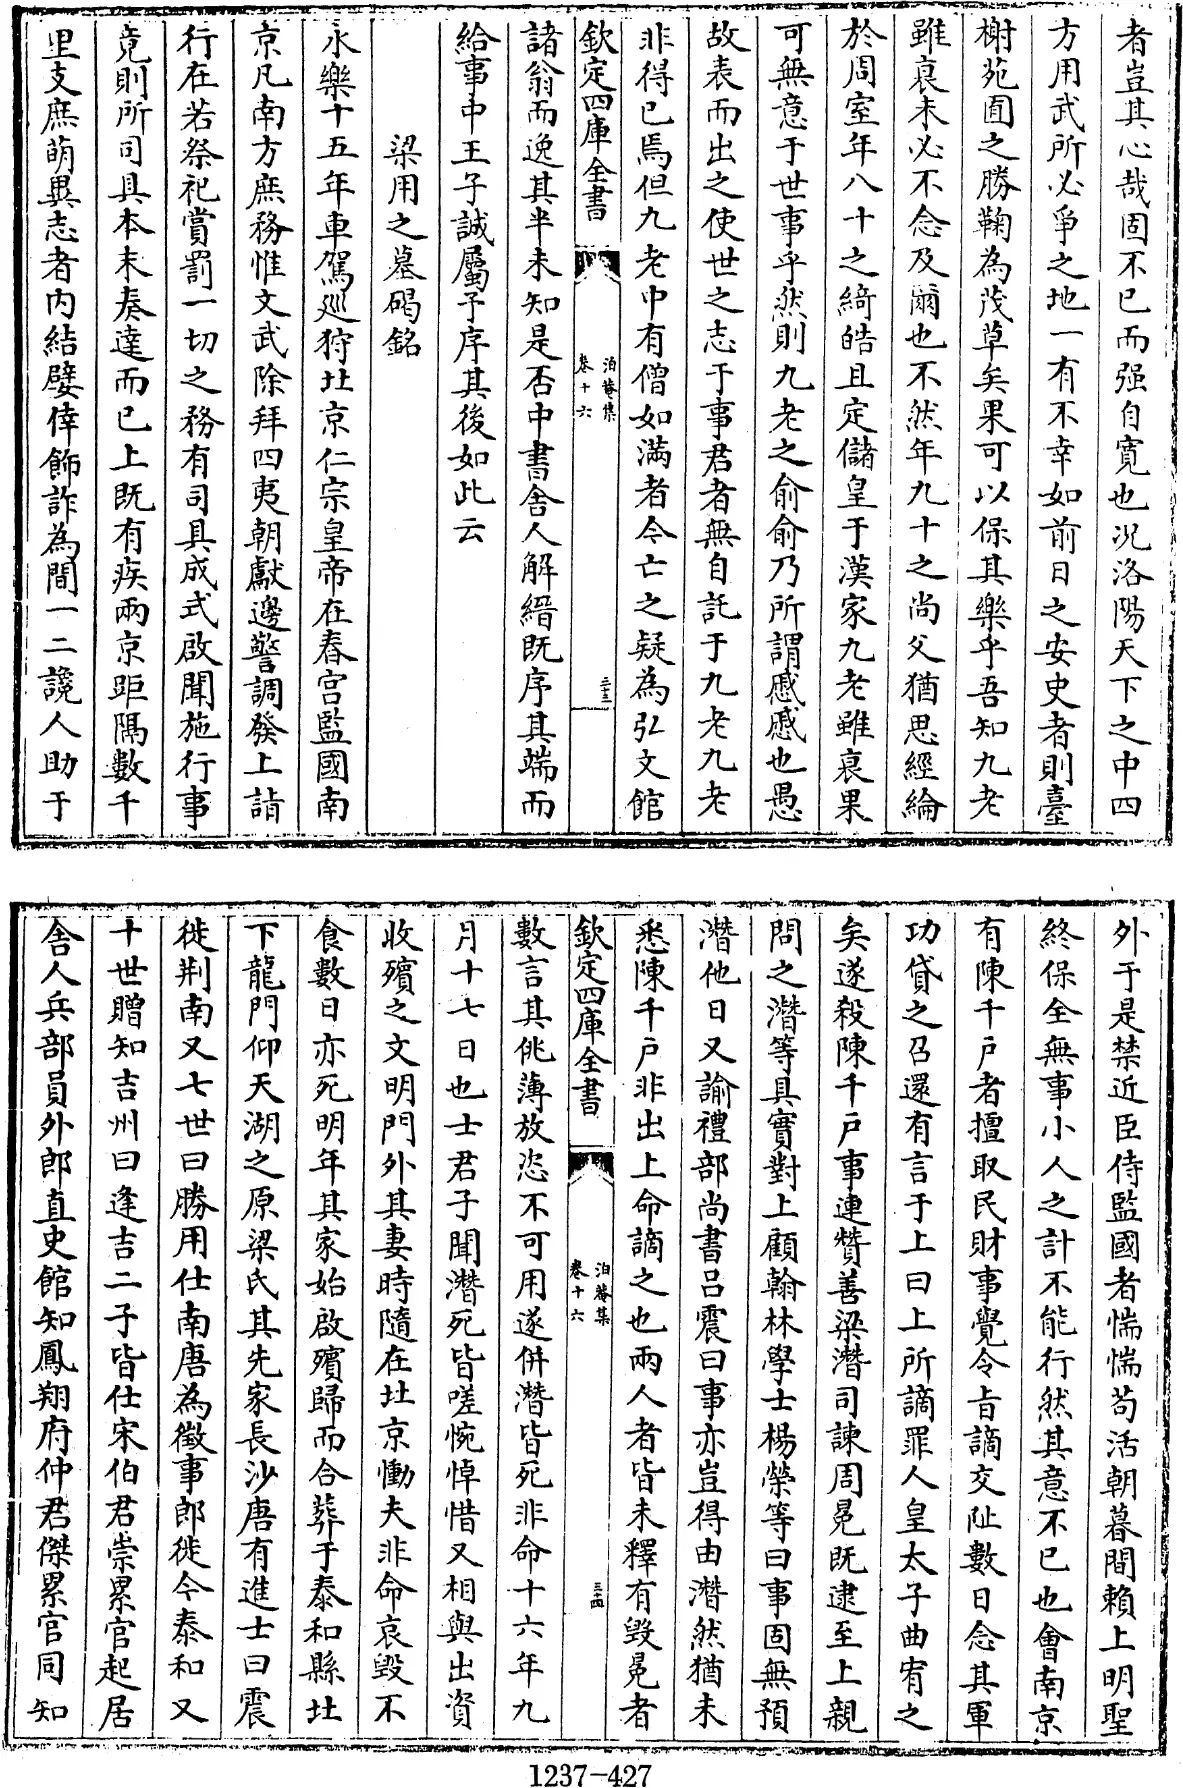 者豈其心哉固不已而强自寛也况洛陽天下之中四
方用武所必爭之地一有不幸如前日之安史者則臺
榭苑囿之勝鞠為茂草矣果可以保其樂乎吾知九老
雖衰未必不念及爾也不然年九十之尚父猶思經綸
於周室年八十之綺皓且定儲皇于漢家九老雖衰果
可無意于世事乎然則九老之俞俞乃所謂慼慼也愚
故表而出之使世之志于事君者無自託于九老九老
非得已焉但九老中有僧如滿者今亡之疑為弘文館
欽定四庫全書
泊菴集
卷十六
三十三
諸翁而逸其半未知是否中書舍人解縉既序其端而
給事中王子誠屬予序其後如此云
梁用之墓碣銘
永樂十五年車駕巡狩北京仁宗皇帝在春宫監國南
京凡南方庶務惟文武除拜四夷朝獻邊警調發上請
行在若祭祀賞罰一切之務有司具成式啟聞施行事
竟則所司具本末奏達而已上既有疾兩京距隔數千
里支庶萌異志者内結嬖倖飾詐為間一二讒人助于
外于是禁近臣侍監國者惴惴苟活朝暮間賴上明聖
終保全無事小人之計不能行然其意不已也會南京
有陳千户者擅取民財事覺令旨謫交阯數日念其軍
功貸之召還有言于上曰上所謫罪人皇太子曲宥之
矣遂殺陳千户事連贊善梁潛司諫周冕既逮至上親
問之潛等具實對上顧翰林學士楊榮等曰事固無預
潛他日又諭禮部尚書吕震曰事亦豈得由潛然猶未
悉陳千户非出上命謫之也兩人者皆未釋有毁冕者
欽定四庫全書
泊菴集
卷十六
三十四
數言其佻薄放恣不可用遂併潛皆死非命十六年九
月十七日也士君子聞潛死皆嗟惋悼惜又相與出資
收殯之文明門外其妻時隨在北京慟夫非命哀毁不
食數日亦死明年其家始啟殯歸而合葬于泰和縣北
下龍門仰天湖之原梁氏其先家長沙唐有進士曰震
徙荆南又七世曰勝用仕南唐為徵事郎徙今泰和又
十世贈知吉州曰逢吉二子皆仕宋伯君崇累官起居
舍人兵部員外郎直史館知鳳翔府仲君傑累官同知
1237-427